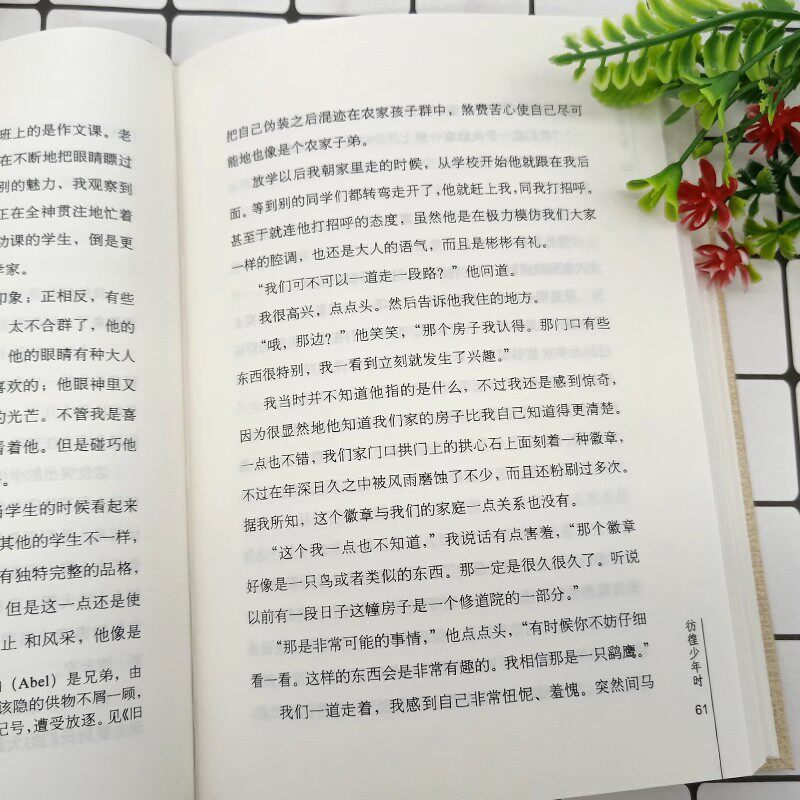 班上的是作文课。老
在不断地把眼睛瞟过
别的魅力、我观察到
正在全神贯注地忙着
功课的学生，倒是更
学家。
印象；正相反，有些
太不合群了，他的
他的眼睛有种大人
喜欢的；他眼神里又
的光芒。不管我是喜
看着他。但是碰巧他
学生的时候看起来
其他的学生不一样，
有独特完整的品格，
但是这一点还是使
止 和风采，他像是
（Abel）是兄弟，由
该隐的供物不屑一顾，
记号，遭受放逐。见《旧
把自己伪装之后混迹在农家孩子群中，煞费苦心使自己尽可
能地也像是个农家子弟。
放学以后我朝家里走的时候，从学校开始他就跟在我后
面。等到别的同学们都转弯走开了，他就赶上我，同我打招呼。
甚至于就连他打招呼的态度，虽然他是在极力模仿我们大家
一样的腔调，也还是大人的语气，而且是彬彬有礼。
“我们可不可以一道走一段路？”他问道。
我很高兴，点点头。然后告诉他我住的地方。
“哦，那边？”他笑笑，“那个房子我认得。那门口有些
东西很特别，我一看到立刻就发生了兴趣。”
我当时并不知道他指的是什么，不过我还是感到惊奇，
因为很显然地他知道我们家的房子比我自己知道得更清楚。
一点也不错，我们家门口拱门上的拱心石上面刻着一种徽章，
不过在年深日久之中被风雨磨蚀了不少，而且还粉刷过多次。
据我所知，这个徽章与我们的家庭一点关系也没有。
“这个我一点也不知道，”我说话有点害羞，“那个徽章
好像是一只鸟或者类似的东西。那一定是很久很久了。听说
以前有一段日子这幢房子是一个修道院的一部分。”
“那是非常可能的事情，”他点点头，“有时候你不妨仔细
看一看。这样的东西会是非常有趣的。我相信那是一只鹞鹰。”
我们一道走着，我感到自己非常忸怩、羞愧。突然间马
彷徨少年时
61